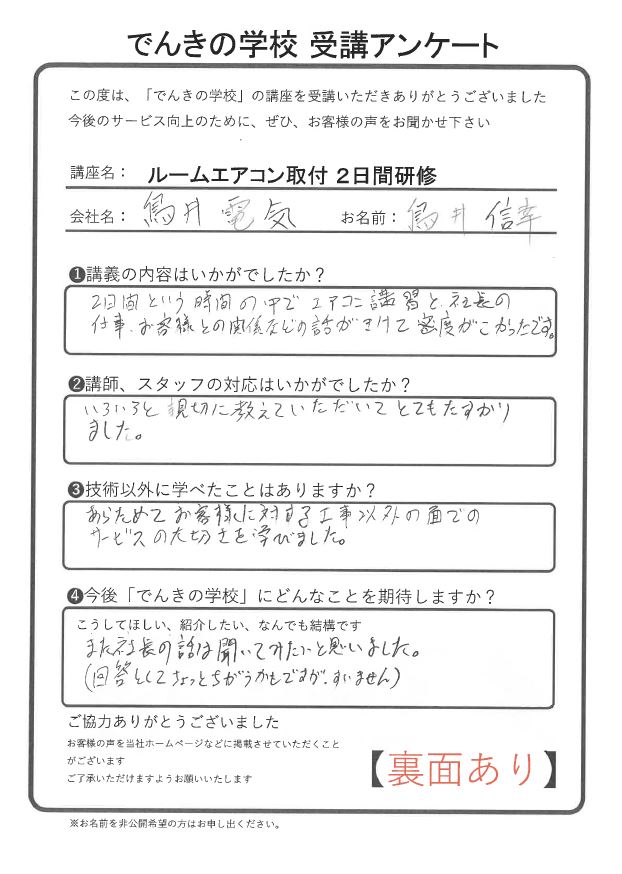 でんきの学校 受講アンケート
この度は、「でんきの学校」の講座を受講いただきありがとうございました
今後のサービス向上のために、ぜひ、お客様の声をお聞かせ下さい
講座名： ルームエアコン取付 2日間研修
会社名： 鳥井電気 お名前： 鳥井 信幸
❶講義の内容はいかがでしたか？
2日間という時間の中でエアコン講習と、社長の
仕事、お客様との関係などの話がきけて密度がこかったです。
❷講師、スタッフの対応はいかがでしたか？
いろいろと親切に教えていただいてとてもたすかり
ました。
❸技術以外に学べたことはありますか？
あらためてお客様に対する工事以外の面での
サービスの大切さを学びました。
❹今後「でんきの学校」にどんなことを期待しますか？
こうしてほしい、紹介したい、なんでも結構です
また社長の話は聞いてみたいと思いました。
(回答としてちょっとちがうかもですが、すいません)
ご協力ありがとうございました
お客様の声を当社ホームページなどに掲載させていただくこと
がございます
ご了承いただけますようお願いいたします
【裏面あり】
※お名前を非公開希望の方はお申し出ください。